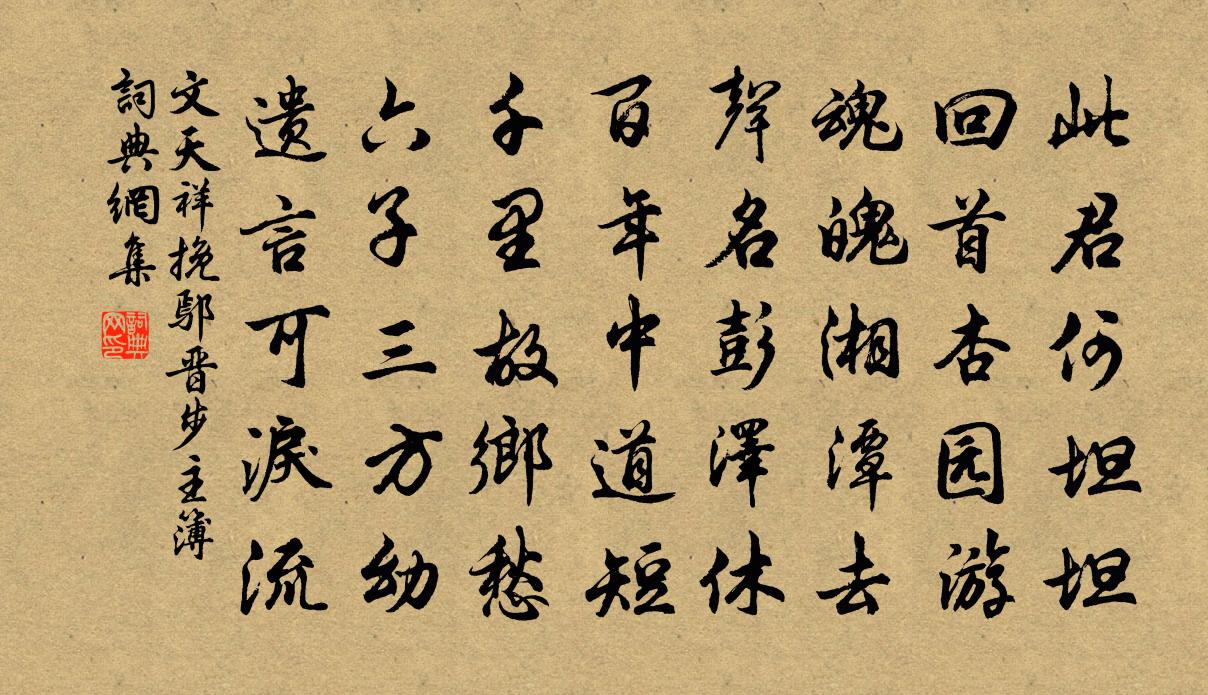 此君何坦坦
回首杏园游
魂魄湘潭去
聲名彭澤休
百年中道短
千里故鄉愁
六子三方幼
遗言可淚流
文天祥挽鄔晋步主簿
詞典網集
詞典网印